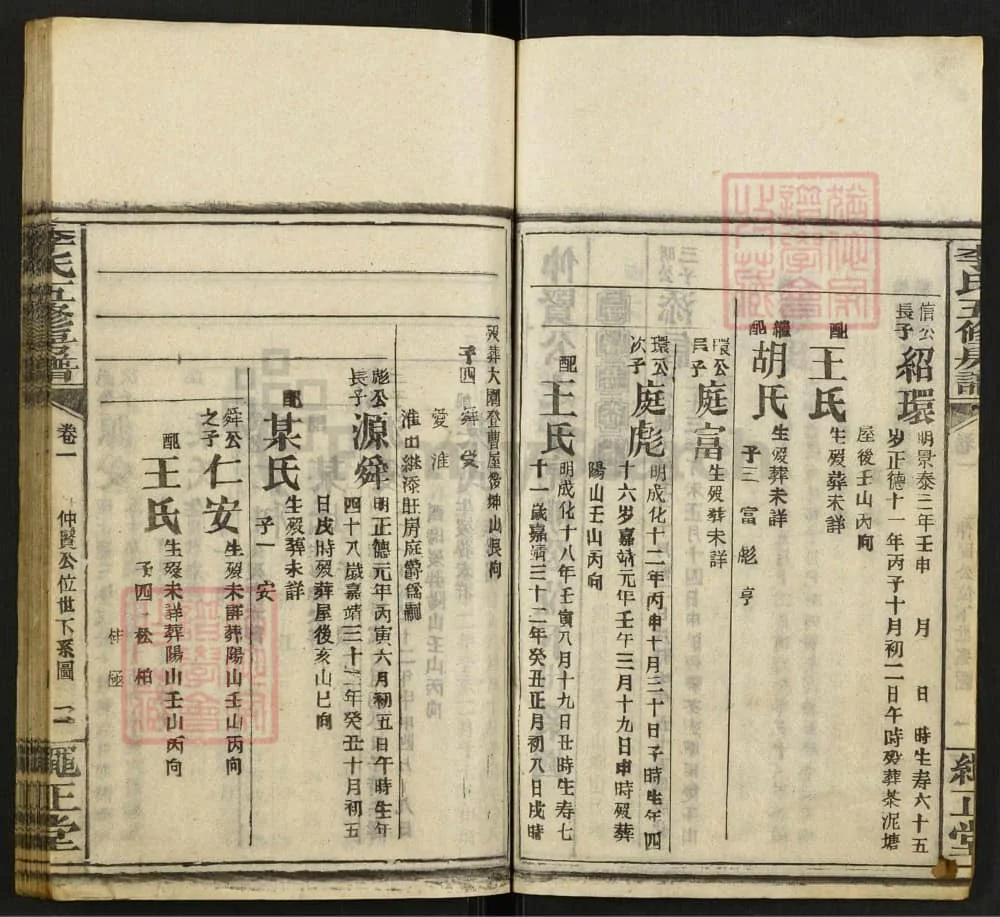 李氏五修房譜
繩正堂
信公長子紹環明景泰三年壬申 月 日 時生寿六十五
岁正德十一年丙子十月初二日午時歿葬茶泥塘
屋後壬山丙向
配王氏生歿葬未詳
繼配胡氏生歿葬未詳
子三 富 彪 亨
環公長子庭富生歿葬未詳
環公次子庭彪明成化十二年丙申十月三十日子時生年四
十六岁嘉靖元年壬午三月十九日申時歿葬
陽山壬山丙向
配王氏明成化十八年壬寅八月十九日丑時生寿七
十一歲嘉靖三十二年癸丑正月初八日戌時
歿葬大園登曹屋後坤山艮向
子四 舜 受
愛 淮
淮出継添旺房庭爵為嗣
彪公長子源舜明正德元年丙寅六月初五日午時生年
四十八歲嘉靖三十二年癸丑十月初五
日戌時歿葬屋後亥山巳向
配某氏生歿葬未詳
子一 安
舜公之子仁安生歿未詳葬陽山壬山丙向
配王氏生歿未詳葬陽山壬山丙向
子四 松 柏
桂 極
李氏五修房譜
卷一
仲賢公位世下系圖
二
繩正堂